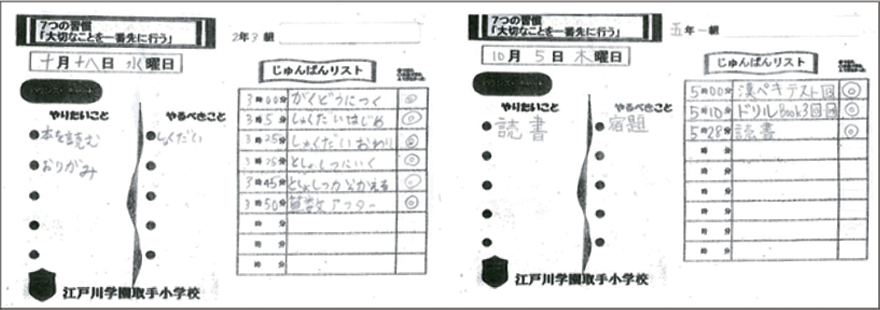 7つの習慣
「大切なことを一番先に行う」
2年3組
十月十八日 水曜日
じゅんばんリスト
やりたいこと
やるべきこと
本を読む
おりがみ
しゅくだい
3時00分 がくどうにつく ◎
3時5分 しゅくだいはじめ ◎
3時25分 しゅくだいおわり ◎
3時35分 としょしつにいく ◎
3時45分 としょしつからかえる ◎
3時50分 算数アフター ◎
時 分
時 分
時 分
江戸川学園取手小学校
7つの習慣
「大切なことを一番先に行う」
五年一組
10月5日 木曜日
じゅんばんリスト
やりたいこと
やるべきこと
読書
宿題
5時00分 漢ペキテスト回 ◎
5時10分 ドリルBook3回 ◎
5時28分 読書 ◎
時 分
時 分
時 分
時 分
時 分
時 分
江戸川学園取手小学校